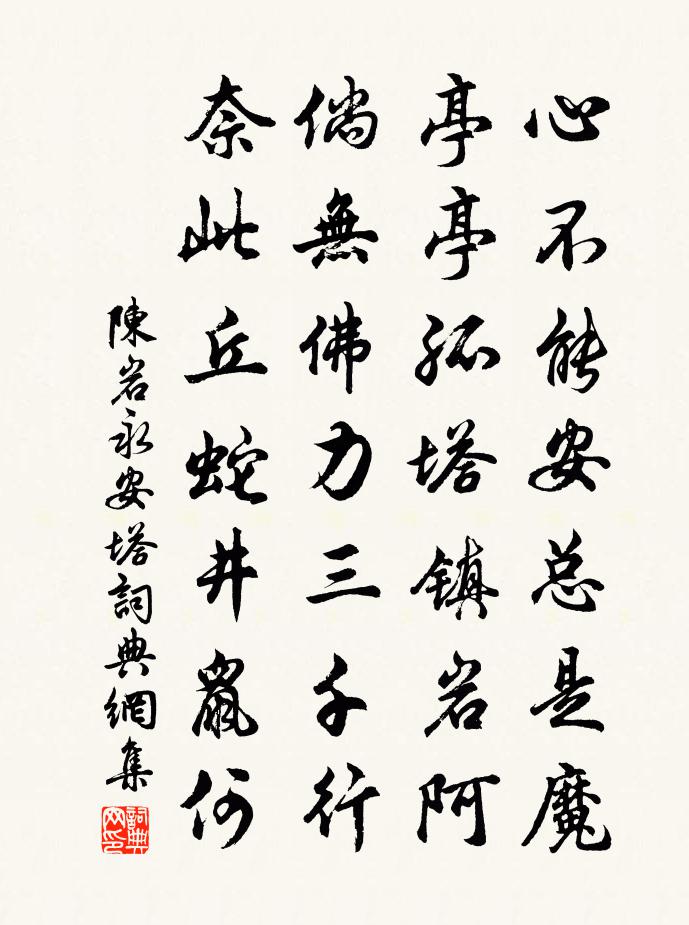 心不能安总是魔
亭亭孤塔镇岩阿
倘無佛力三千行
奈此丘蛇井鼠何
陳岩永安塔詞典網集
詞典网印